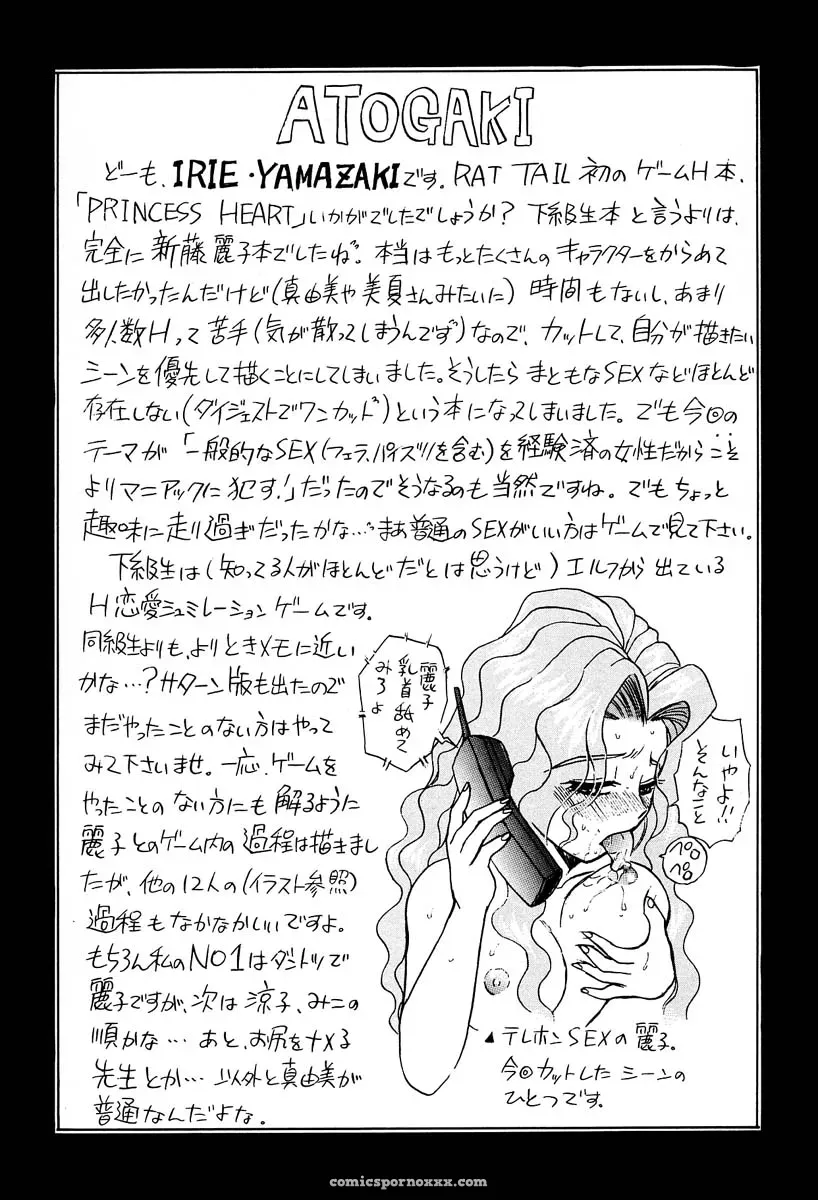 ATOGAKI
どーも、IRIE・YAMAZAKIです。RAT TAIL 初の ゲームH本、
「PRINCESS HEART」いかがでしたでしょうか? 下級生本 と言うよりは、
完全に 新藤 麗子本でしたね。本当は もっとたくさんの キャラクターをからめて
出したかったんだけど(真由美や 美夏さんみたいに) 時間もないし、あまり
多人数H って 苦手(気が散ってしまうんです)なので、カットして、自分が描きたい
シーンを優先して描くことにしてしまいました。そうしたら まともなSEXなどほとんど
存在しない(ダイジェストでワンカット)という本になってしまいました。でも今回の
テーマが「一般的なSEX(フェラ、パイズリを含む)を経験済の女性だからこそ
よりマニアックに犯す!」だったのでそうなるのも当然ですね。でもちょっと
趣味に走り過ぎだったかな…。まあ普通のSEXがいい方はゲームで見て下さい。
下級生は(知ってる人がほとんどだとは思うけど) エルフから出ている
H恋愛シュミレーションゲームです。
同級生よりも、よりときメモに近い
かな…? サターン版も出たので
まだやったことのない方はやって
みて下さいませ。一応、ゲームを
やったことのない方にも 解るように
麗子とのゲーム内の過程は描きまし
たが、他の12人の(イラスト参照)
過程もなかなかいいですよ。
もちろん私のNO1はダントツで
麗子ですが、次は 涼子、みこの
順かな… あと、お尻をナメる
先生とか… 以外と真由美が
普通なんだよな。
麗子
乳首舐めて
みろよ
いやよ!!
そんなこと
ペロ
ペロ
▲テレホンSEXの麗子。
今回カットしたシーンの
ひとつです。
comicspornoxxx.com